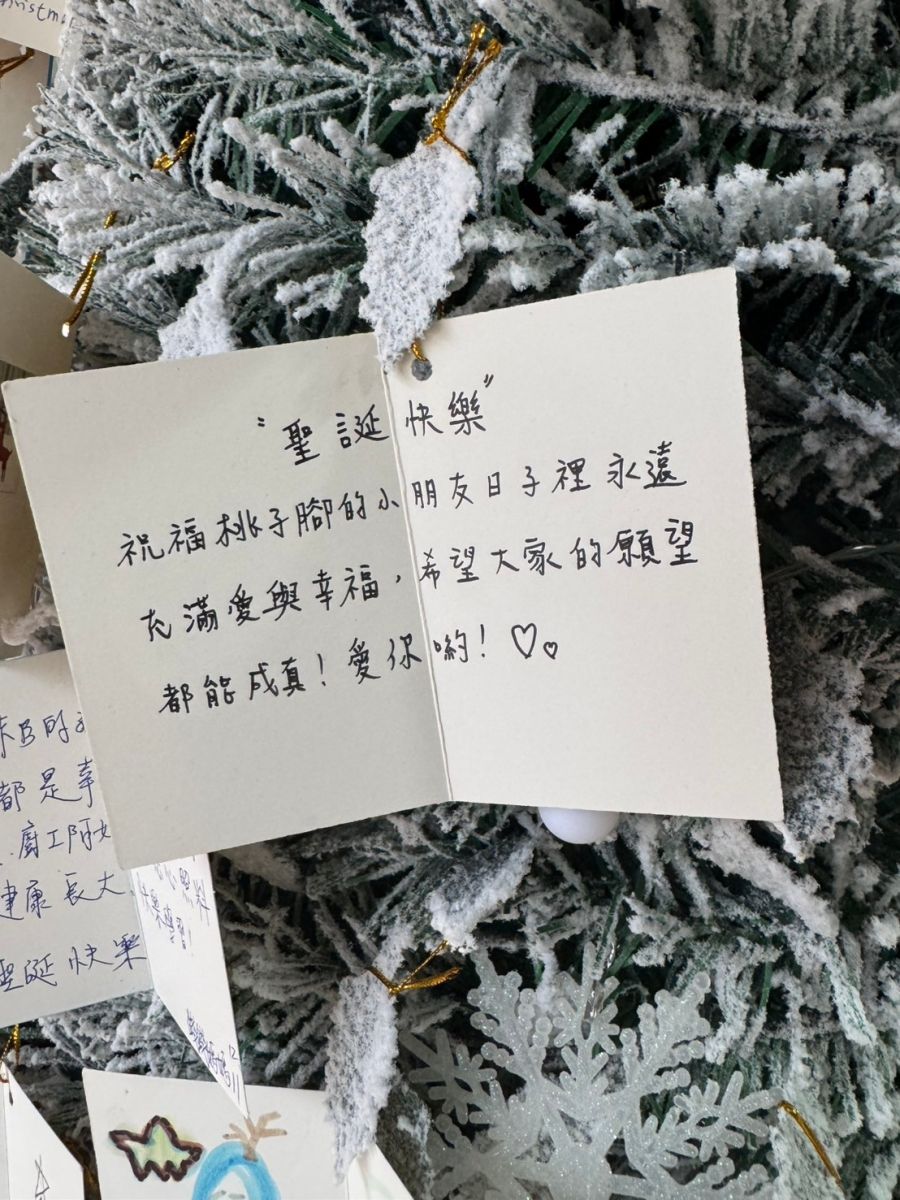 "聖誕快樂"
祝福桃子腳的小朋友日子裡永遠
充滿愛與幸福,希望大家的願望
都能成真!愛你喲!♡♡
都是幸
廚工阿
健康長大
聖誕快樂